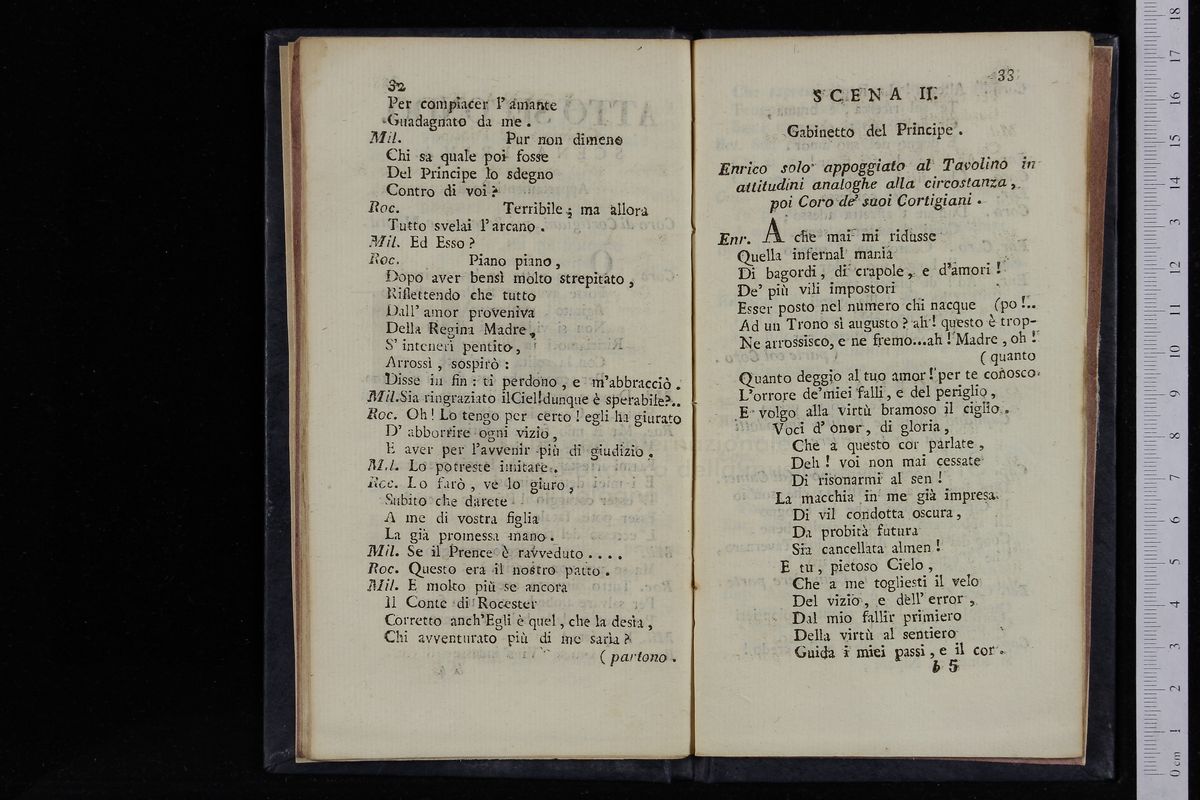 32
Per compiacer l' amante
Guadagnato da me .
Mil. Pur non dimeno
Chi sa quale poi fosse
Del Principe lo sdegno
Contro di voi ?
Roc. Terribile ; ma allora
Tutto svelai l' arcano .
Mil. Ed Esso ?
Roc. Piano piano ,
Dopo aver bensì molto strepitato ,
Riflettendo che tutto
Dall' amor proveniva
Della Regina Madre ,
S' intenerì pentito ,
Arrossì , sospirò :
Disse in fin : ti perdono , e m'abbracciò .
Mil.Sia ringraziato ilCiel!dunque è sperabile?..
Roc. Oh ! Lo tengo per certo ! egli ha giurato
D' abborrire ogni vizio ,
E aver per l'avvenir più di giudizio .
Mil. Lo potreste imitare .
Roc. Lo farò , ve lo giuro ,
Subito che darete
A me di vostra figlia
La già promessa mano .
Mil. Se il Prence è ravveduto . . . .
Roc. Questo era il nostro patto .
Mil. E molto più se ancora
Il Conte di Rocester
Corretto anch'Egli è quel , che la desia ,
Chi avventurato più di me saria ?
( partono .
33
SCENA II.
Gabinetto del Principe .
Enrico solo appoggiato al Tavolino in
attitudini analoghe alla circostanza ,
poi Coro de' suoi Cortigiani .
Enr. A che mai mi ridusse
Quella infernal mania
Di bagordi , di crapole , e d'amori !
De' più vili impostori
Esser posto nel numero chi nacque (po !..
Ad un Trono sì augusto ? ah ! questo è trop-
Ne arrossisco, e ne fremo...ah ! Madre , oh !
( quanto
Quanto deggio al tuo amor ! per te conosco
L'orrore de'miei falli , e del periglio ,
E volgo alla virtù bramoso il ciglio .
Voci d' onor , di gloria ,
Che a questo cor parlate ,
Deh ! voi non mai cessate
Di risonarmi al sen !
La macchia in me già impressa
Di vil condotta oscura ,
Da probità futura
Sia cancellata almen !
E tu , pietoso Cielo ,
Che a me togliesti il velo
Del vizio , e dell' error ,
Dal mio fallir primiero
Della virtù al sentiero
Guida i miei passi , e il cor .
b 5
0 cm 1 2 3 4 5 6 7 8 9 10 11 12 13 14 15 16 17 18